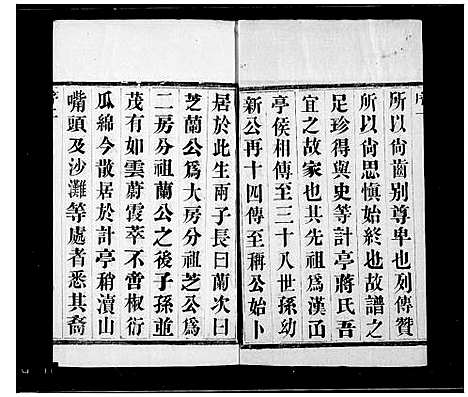 所以尙齒別尊卑也列傳贊
所以尙思愼始終也故譜之
足珍得與史等計亭蔣氏吾
宜之故家也其先祖爲漢㓰
亭侯相傳至三十八世孫幼
新公再十四傳至稱公始卜
居於此生兩子長曰蘭次曰
芝蘭公爲大房分祖芝公爲
二房分祖蘭公之後子孫並
茂有如雲蔚霞萃不啻椒衍
瓜綿今散居於計亭稍瀆山
嘴頭及沙灘等處者悉其裔